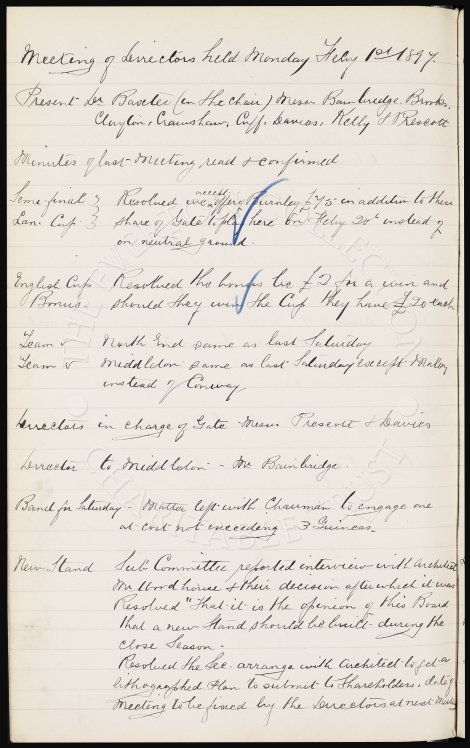 Meeting of Directors held Monday Feby 1st 1897.
Present Dr Baxter (in the chair) Messrs Bainbridge. Brooks.
Clayton. Crawshaw. Cuff. Davies. Kelly & Prescott
Minutes of last Meeting read & confirmed
Semi-final } Resolved we accept offer Burnley £75 in addition to their
Lan: Cup } share of Gate to play here on Feby 20th instead of
on neutral ground.
English Cup Resolved the bonus be £2 for a win and
Bonus. should they win the Cup they have £20 each
Team v North End same as last Saturday
Team v Middleton same as last Saturday except
instead of Conway
Directors in charge of Gate Messrs Prescott & Davies
Director to Middleton - Mr Bainbridge.
Band for Saturday - Matter left with Chairman to engage one
at cost not exceeding 3 Guineas.
New Stand Sub Committee reported interview with Architect
Mr Woodhouse & their decision after which it was
Resolved "That it is the opinion of this Board
that a new Stand should be built during the
Close Season.
Resolved the Sec arrange with Architect to get a
lithographed Plan to submit to Shareholders, date of
Meeting to be fixed by the Directors at next Meeting